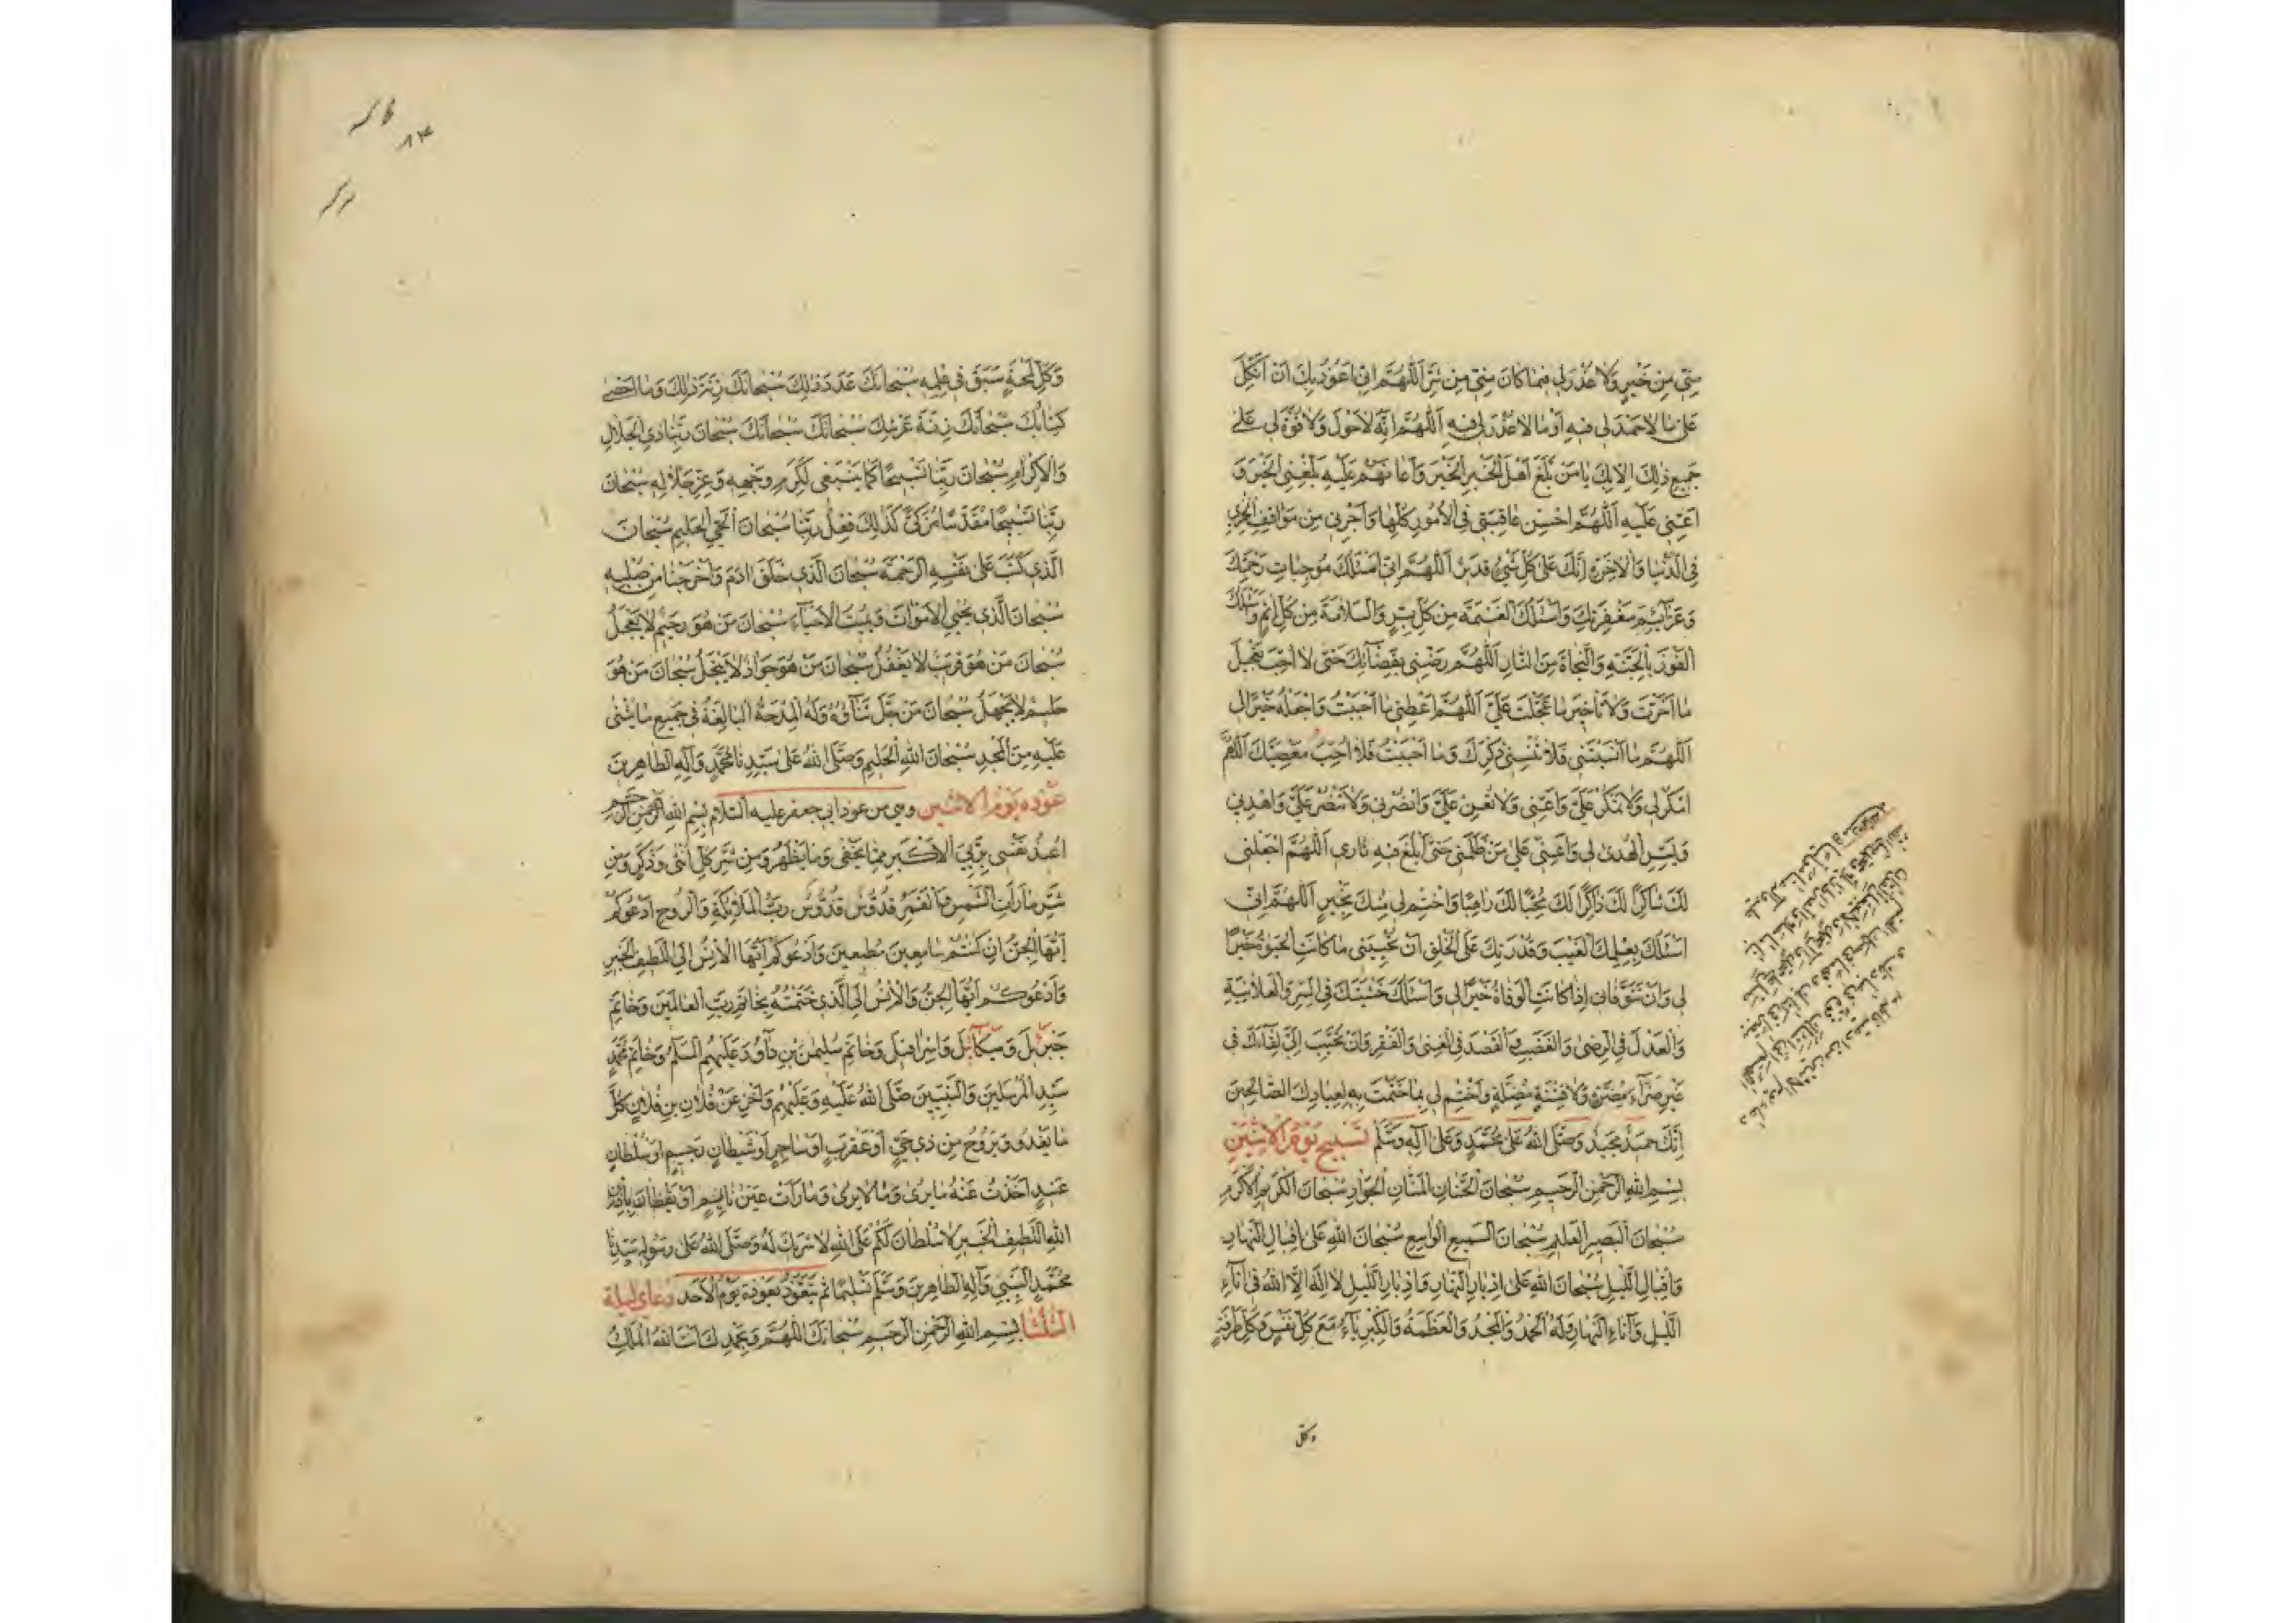 مِنّى مِنْ خَيْرٍ وَلا عُذْرَ لى فيما كانَ مِنّى مِنْ شَرٍّ اَللّهُمَّ اِنّى اَعُوذُ بِكَ اَنْ اَتَّكِلَ
عَلى ما لا حَمْدَ لى فيهِ اَوْ ما لا عُذْرَ لى فيهِ اَللّهُمَّ اِنَّهُ لا حَوْلَ وَلا قُوَّةَ لى عَلى
جَميعِ ذلِكَ اِلّا بِكَ يا مَنْ بَلَّغَ اَهْلَ الْخَيْرِ الْخَيْرَ وَاَعانَهُمْ عَلَيْهِ بَلِّغْنِى الْخَيْرَ وَ
اَعِنّى عَلَيْهِ اَللّهُمَّ اَحْسِنْ عاقِبَتى فِى الْاُمُورِ كُلِّها وَاَجِرْنى مِنْ مَواقِفِ الْخِزْىِ
فِى الدُّنْيا وَالْاخِرَةِ اِنَّكَ عَلى كُلِّ شَىْءٍ قَديرٌ اَللّهُمَّ اِنّى اَسْئَلُكَ مُوجِباتِ رَحْمَتِكَ
وَعَزآئِمَ مَغْفِرَتِكَ وَاَسْئَلُكَ الْغَنيمَةَ مِنْ كُلِّ بِرٍّ وَالسَّلامَةَ مِنْ كُلِّ اِثْمٍ وَاَسْئَلُكَ
الْفَوْزَ بِالْجَنَّةِ وَالنَّجاةَ مِنَ النّارِ اَللّهُمَّ رَضِّنى بِقَضآئِكَ حَتّى لا اُحِبَّ تَعْجيلَ
ما اَخَّرْتَ وَلا تَأخيرَ ما عَجَّلْتَ عَلَىَّ اَللّهُمَّ اَعْطِنى ما اَحْبَبْتُ وَاجْعَلْهُ خَيْرًا لى
اَللّهُمَّ ما اَنْسَيْتَنى فَلا تُنْسِنى ذِكْرَكَ وَما اَحْبَبْتُ فَلا اُحِبُّ مَعْصِيَتَكَ اَللّهُمَّ
امْكُرْ لى وَلا تَمْكُرْ عَلَىَّ وَاَعِنّى وَلا تُعِنْ عَلَىَّ وَانْصُرْنى وَلا تَنْصُرْ عَلَىَّ وَاهْدِنى
وَيَسِّرِ الْهُدى لى وَاَعِنّى عَلى مَنْ ظَلَمَنى حَتّى اَبْلُغَ فيهِ ثارى اَللّهُمَّ اجْعَلْنى
لَكَ شاكِرًا لَكَ ذاكِرًا لَكَ مُحِبًّا لَكَ راهِبًا وَاخْتِمْ لى مِنْكَ بِخَيْرٍ اَللّهُمَّ اِنّى
اَسْئَلُكَ بِعِلْمِكَ الْغَيْبَ وَقُدْرَتِكَ عَلَى الْخَلْقِ اَنْ تُحْيِيَنى ما كانَتِ الْحَيوةُ خَيْرًا
لى وَاَنْ تَتَوَفّانى اِذا كانَتِ الْوَفاةُ خَيْرًا لى وَاَسْئَلُكَ خَشْيَتَكَ فِى السِّرِّ وَالْعَلانِيَةِ
وَالْعَدْلَ فِى الرِّضى وَالْغَضَبِ وَالْقَصْدَ فِى الْغِنى وَالْفَقْرِ وَاَنْ تُحَبِّبَ اِلَىَّ لِقآءَكَ فى
غَيْرِ ضَرّآءَ مُضِرَّةٍ وَلا فِتْنَةٍ مُضِلَّةٍ وَاخْتِمْ لى بِما خَتَمْتَ بِهِ لِعِبادِكَ الصّالِحينَ
اِنَّكَ حَميدٌ مَجيدٌ وَصَلَّى اللهُ عَلى مُحَمَّدٍ وَعَلى آلِهِ وَسَلَّمَ تَسْبيحُ يَوْمِ الْاِثْنَيْنِ
بِسْمِ اللهِ الرَّحْمنِ الرَّحيمِ سُبْحانَ الْحَنّانِ الْمَنّانِ الْجَوادِ سُبْحانَ الْكَريمِ الْاَكْرَمِ
سُبْحانَ الْبَصيرِ الْعَليمِ سُبْحانَ السَّميعِ الْواسِعِ سُبْحانَ اللهِ عَلى اِقْبالِ النَّهارِ
وَاِقْبالِ اللَّيْلِ سُبْحانَ اللهِ عَلى اِدْبارِ النَّهارِ وَاِدْبارِ اللَّيْلِ لا اِلهَ اِلَّا اللهُ فى آناءِ
اللَّيْلِ وَآناءِ النَّهارِ وَلَهُ الْحَمْدُ وَالْمَجْدُ وَالْعَظَمَةُ وَالْكِبْرِيآءُ مَعَ كُلِّ نَفَسٍ وَكُلِّ طَرْفَةٍ
وكل
وَكُلِّ لَمْحَةٍ سَبَقَ فى عِلْمِهِ سُبْحانَكَ عَدَدَ ذلِكَ سُبْحانَكَ زِنَةَ ذلِكَ وَما اَحْصى
كِتابُكَ سُبْحانَكَ زِنَةَ عَرْشِكَ سُبْحانَكَ سُبْحانَكَ سُبْحانَ رَبِّنا ذِى الْجَلالِ
وَالْاِكْرامِ سُبْحانَ رَبِّنا تَسْبيحًا كَما يَنْبَغى لِكَرَمِ وَجْهِهِ وَعِزِّ جَلالِهِ سُبْحانَ
رَبِّنا تَسْبيحًا مُقَدَّسًا مُزَكًّى كَذلِكَ فِعْلُ رَبِّنا سُبْحانَ الْحَىِّ الْحَليمِ سُبْحانَ
الَّذى كَتَبَ عَلى نَفْسِهِ الرَّحْمَةَ سُبْحانَ الَّذى خَلَقَ ادَمَ وَاَخْرَجَنا مِنْ صُلْبِهِ
سُبْحانَ الَّذى يُحْيِى الْاَمْواتَ وَيُميتُ الْاَحْيآءَ سُبْحانَ مَنْ هُوَ رَحيمٌ لا يَعْجَلُ
سُبْحانَ مَنْ هُوَ قَريبٌ لا يَغْفُلُ سُبْحانَ مَنْ هُوَ جَوادٌ لا يَبْخَلُ سُبْحانَ مَنْ هُوَ
حَليمٌ لا يَجْهَلُ سُبْحانَ مَنْ جَلَّ ثَنآؤُهُ وَلَهُ الْمِدْحَةُ الْبالِغَةُ فى جَميعِ ما يُثْنى
عَلَيْهِ مِنَ الْمَجْدِ سُبْحانَ اللهِ الْحَليمِ وَصَلَّى اللهُ عَلى سَيِّدِنا مُحَمَّدٍ وَآلِهِ الطّاهِرينَ
عَوْذَه يَوْمِ الْاِثْنَيْنِ وهى من عوذ ابى جعفر عليه السلام بِسْمِ اللهِ الرَّحْمنِ الرَّحيمِ
اُعيذُ نَفْسى بِرَبِّىَ الْاَكْبَرِ مِمّا يَخْفى وَما يَظْهَرُ وَمِنْ شَرِّ كُلِّ اُنْثى وَذَكَرٍ وَمِنْ
شَرِّ ما رَاَتِ الشَّمْسُ وَالْقَمَرُ قُدُّوسٌ قُدُّوسٌ رَبُّ الْمَلآئِكَةِ وَالرُّوحِ اَدْعُوكُمْ
اَيُّهَا الْجِنُّ اِنْ كُنْتُمْ سامِعينَ مُطيعينَ وَاَدْعُوكُمْ اَيُّهَا الْاِنْسُ اِلَى اللَّطيفِ الْخَبيرِ
وَاَدْعُوكُمْ اَيُّهَا الْجِنُّ وَالْاِنْسُ اِلَى الَّذى خَتَمْتُهُ بِخاتَمِ رَبِّ الْعالَمينَ وَخاتَمِ
جَبْرَئيلَ وَميكآئيلَ وَاِسْرافيلَ وَخاتَمِ سُلَيْمنَ بْنِ داوُدَ عَلَيْهِمُ السَّلمُ وَخاتَمِ مُحَمَّدٍ
سَيِّدِ الْمُرْسَلينَ وَالنَّبِيّينَ صَلَّى اللهُ عَلَيْهِ وَعَلَيْهِمْ وَاَخِّرْ عَنْ فُلانِ بْنِ فُلانٍ كُلَّ
ما يَغْدُو وَيَرُوحُ مِنْ ذى حَىٍّ اَوْ عَقْرَبٍ اَوْ ساحِرٍ اَوْ شَيْطانٍ رَجيمٍ اَوْ سُلْطانٍ
عَنيدٍ اَخَذْتُ عَنْهُ ما يُرى وَما لا يُرى وَما رَاَتْ عَيْنُ نائِمٍ اَوْ يَقْظانَ بِاِذْنِ
اللهِ اللَّطيفِ الْخَبيرِ لا سُلْطانَ لَكُمْ عَلَى اللهِ لا شَريكَ لَهُ وَصَلَّى اللهُ عَلى رَسُولِهِ سَيِّدِنا
مُحَمَّدٍ النَّبِىِّ وَآلِهِ الطّاهِرينَ وَسَلَّمَ تَسْليمًا ثُمَّ يَتَعَوَّذُ بِعُوذَةِ يَوْمِ الْاَحَدِ دُعاى لَيلة
الثلثا بِسْمِ اللهِ الرَّحْمنِ الرَّحيمِ سُبْحانَكَ اللّهُمَّ وَبِحَمْدِكَ اَنْتَ اللهُ الْمَلِكُ